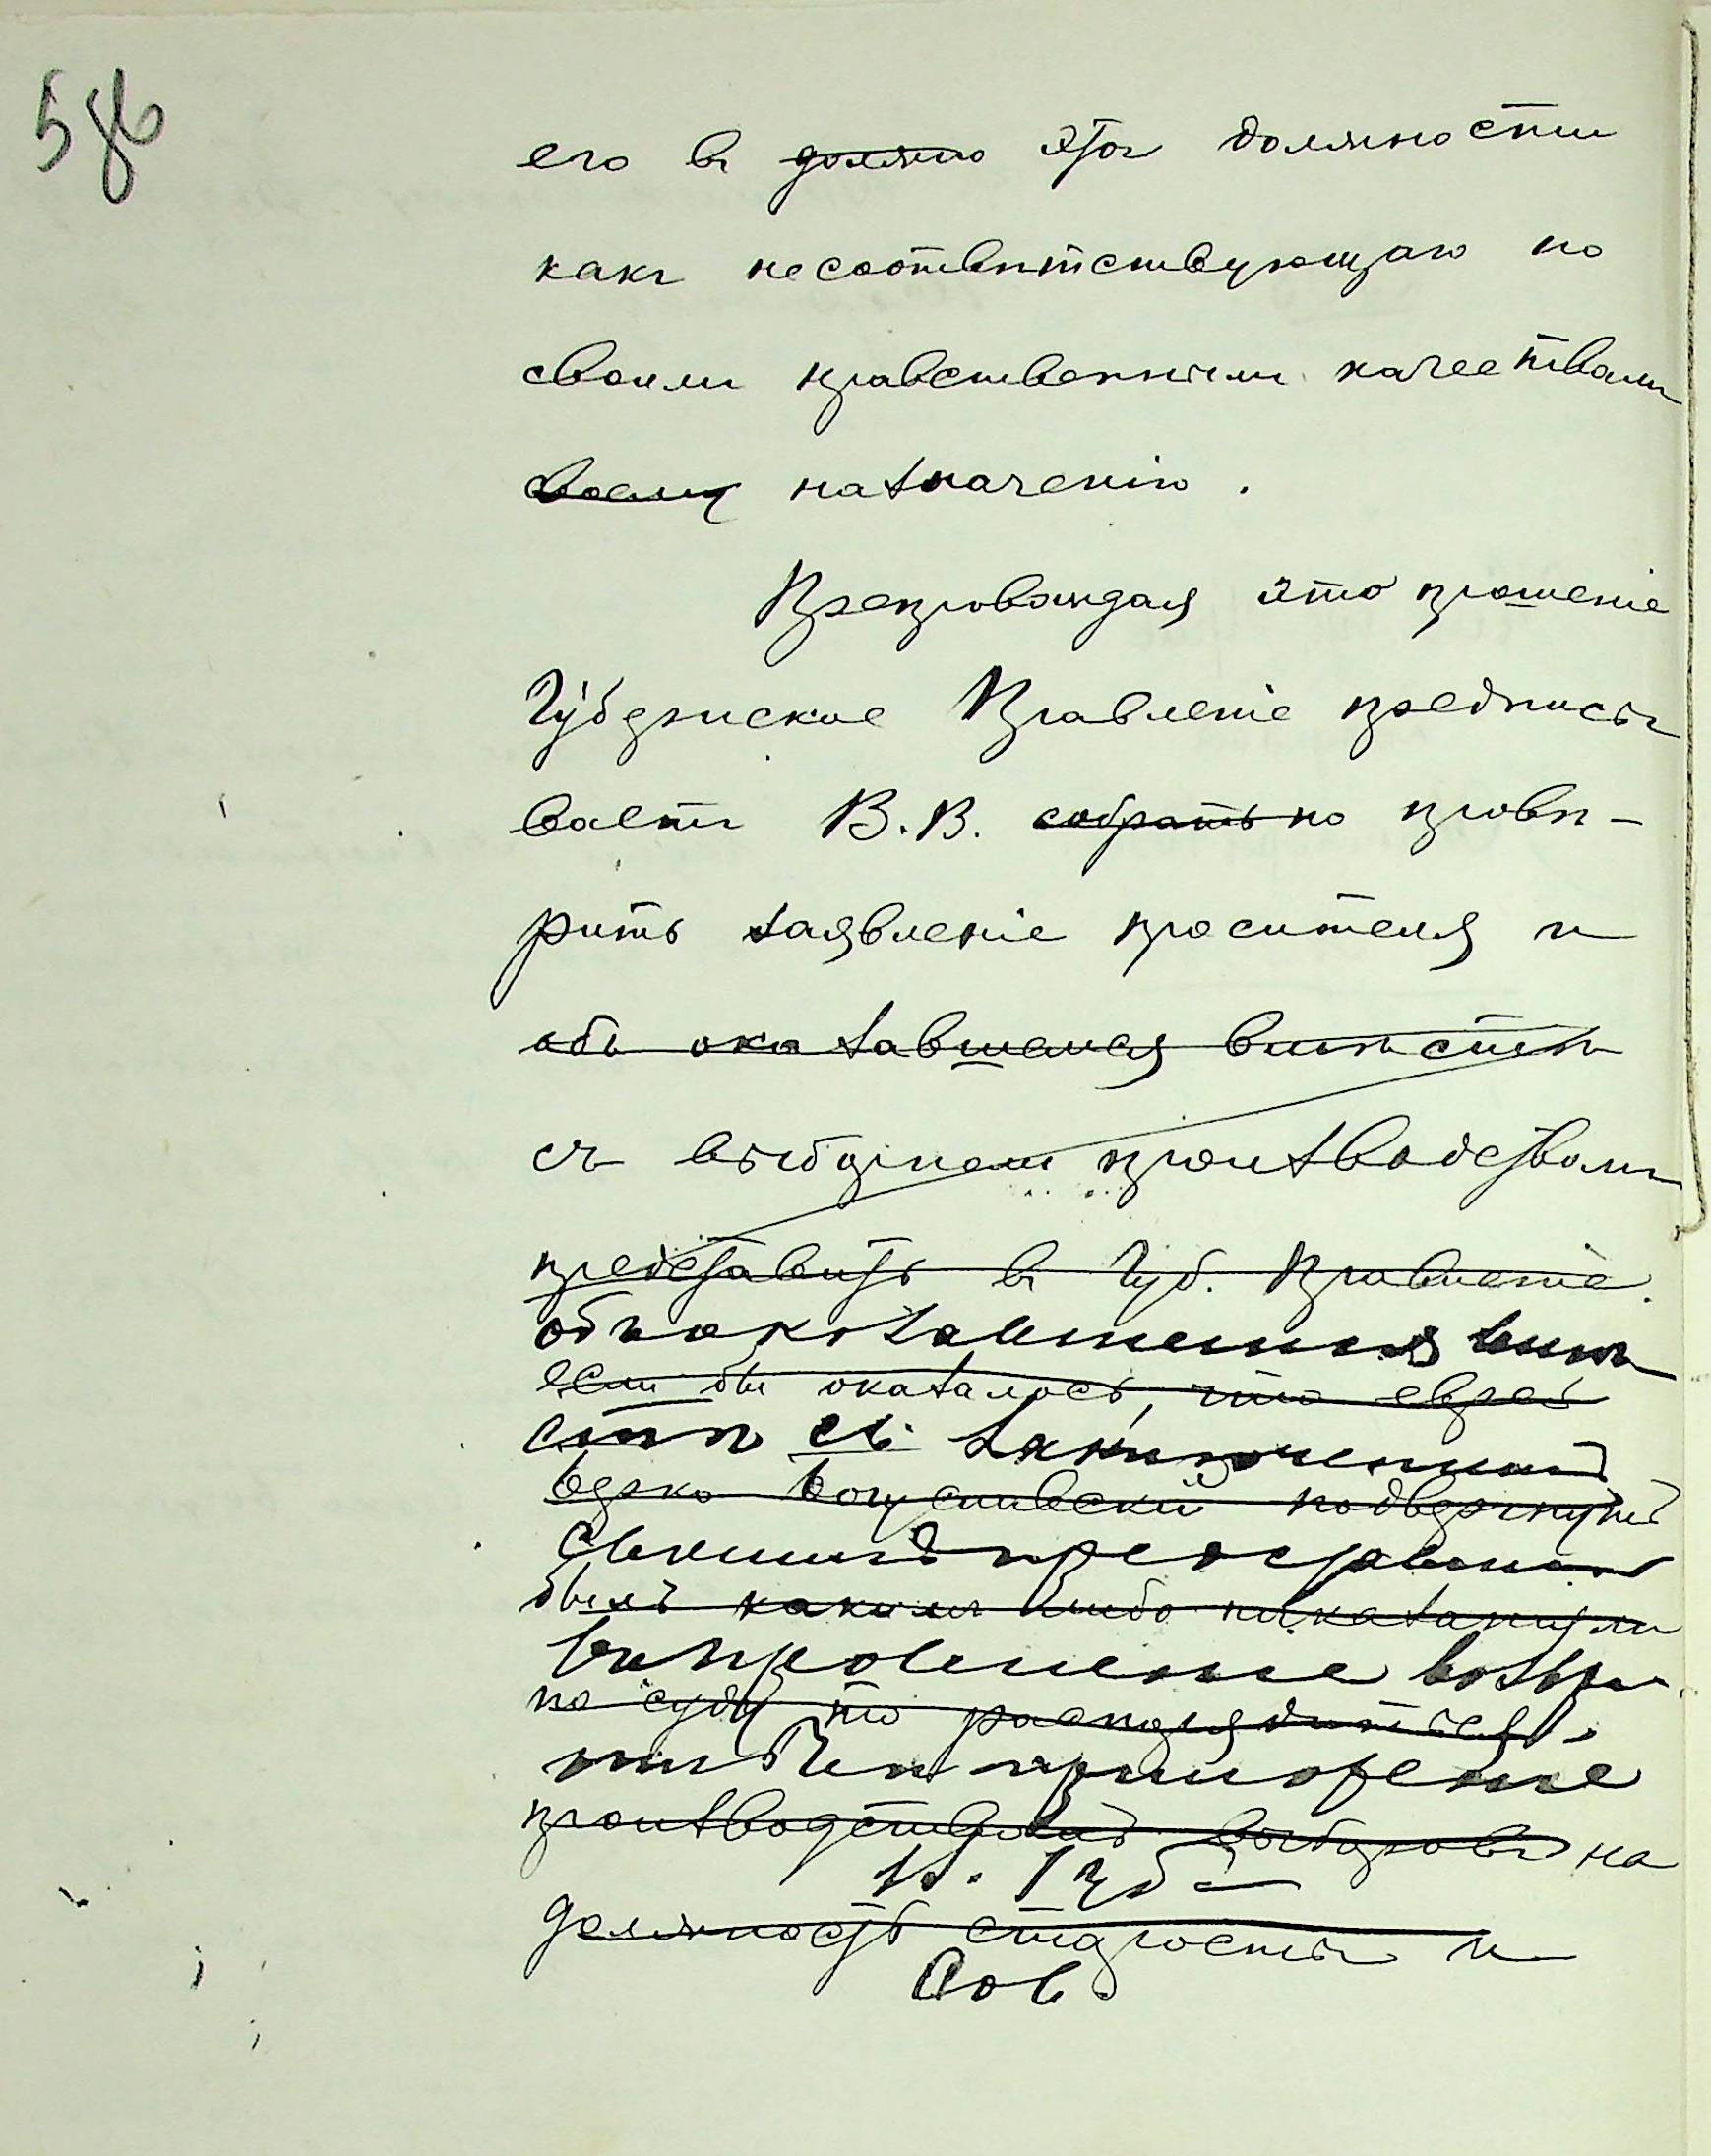 58
его въ должно этой должности
какъ несоответствующаго по
своимъ нравственнымъ качествамъ
своему назначенію.
Препровождая это прошеніе
Губернское Правленіе предписы
ваетъ В.В. собрать по провѣ-
рить заявленіе просителя и
объ оказавшемся вмѣстѣ
съ выборнымъ производствомъ
представить въ Губ. Правленіе.
объ оказавшемся вмѣ
если бы оказалось, что еврей
стѣ съ заключеніемъ
Берко подвергнутъ
своимъ представить
былъ какимъ либо наказаніямъ
прошеніе возвра
по суду то распорядиться
приложеніе
производствомъ выборовъ на
Губ
должность старосты и
Сов.